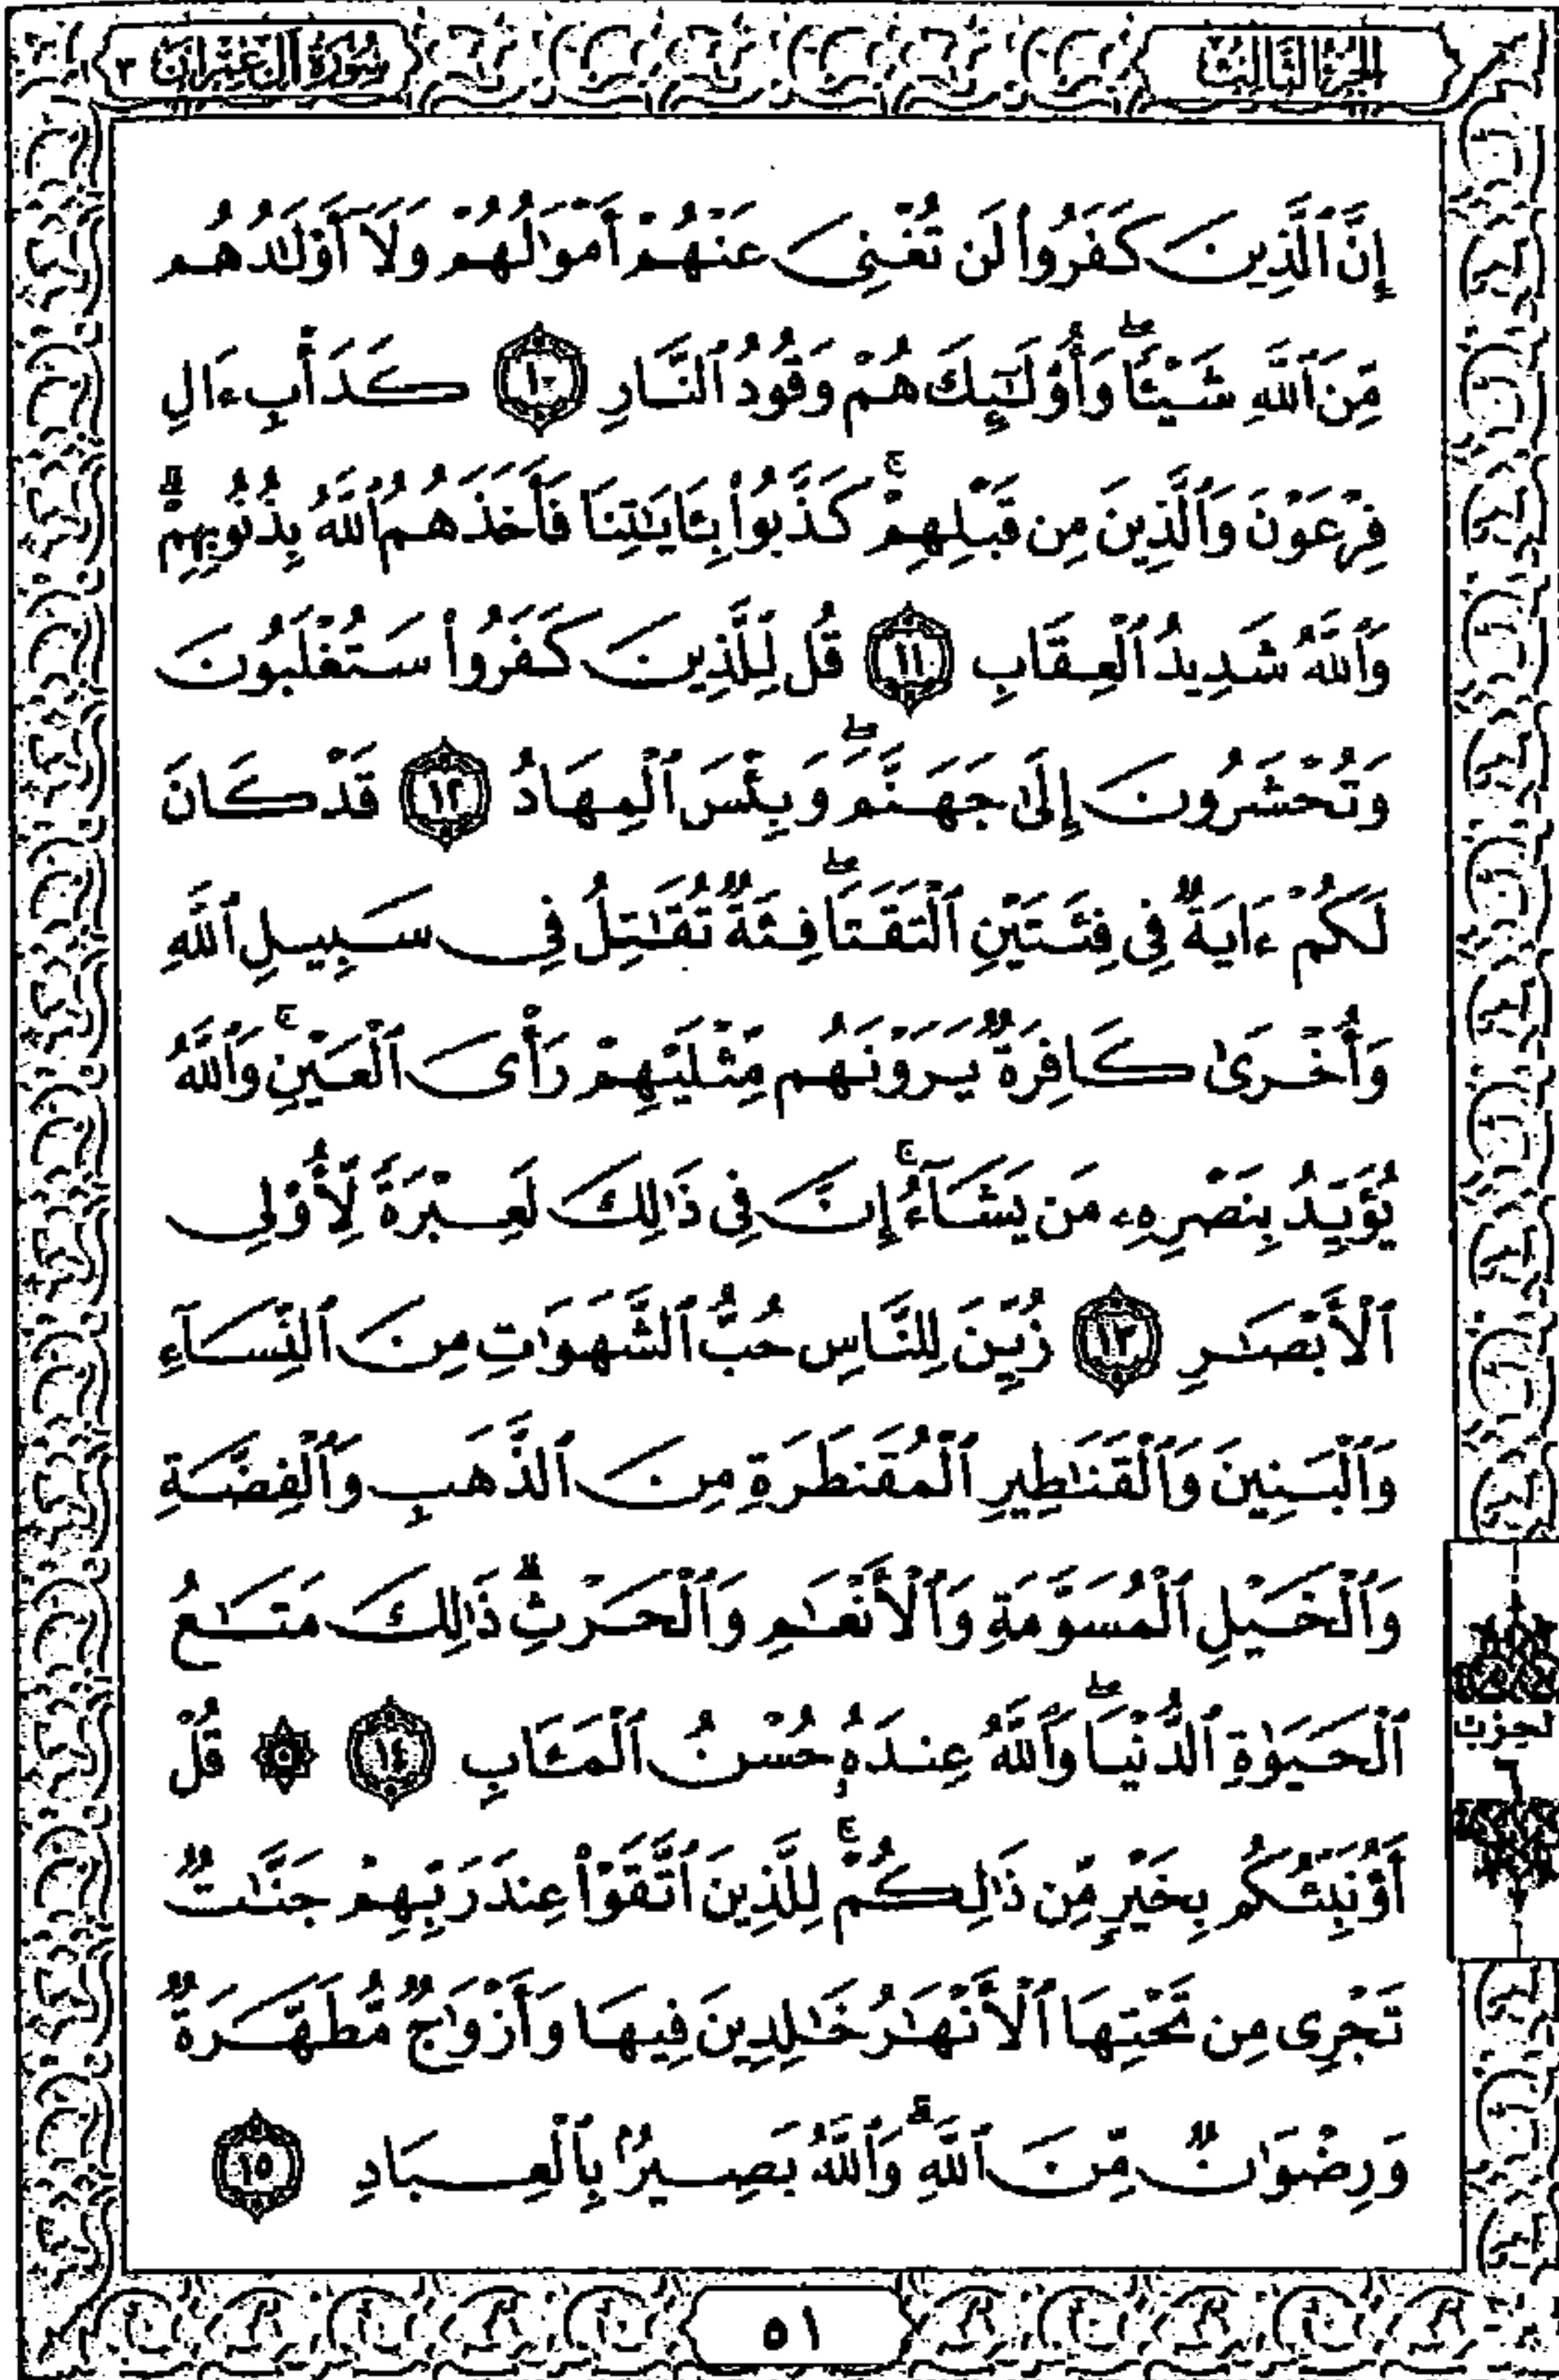 الجزء الثالث
سورة آل عمران ٣
إِنَّ ٱلَّذِينَ كَفَرُوا۟ لَن تُغْنِىَ عَنْهُمْ أَمْوَٰلُهُمْ وَلَآ أَوْلَٰدُهُم
مِّنَ ٱللَّهِ شَيْـًٔا ۖ وَأُو۟لَٰٓئِكَ هُمْ وَقُودُ ٱلنَّارِ ١٠ كَدَأْبِ ءَالِ
فِرْعَوْنَ وَٱلَّذِينَ مِن قَبْلِهِمْ ۚ كَذَّبُوا۟ بِـَٔايَٰتِنَا فَأَخَذَهُمُ ٱللَّهُ بِذُنُوبِهِمْ ۗ
وَٱللَّهُ شَدِيدُ ٱلْعِقَابِ ١١ قُل لِّلَّذِينَ كَفَرُوا۟ سَتُغْلَبُونَ
وَتُحْشَرُونَ إِلَىٰ جَهَنَّمَ ۖ وَبِئْسَ ٱلْمِهَادُ ١٢ قَدْ كَانَ
لَكُمْ ءَايَةٌ فِى فِئَتَيْنِ ٱلْتَقَتَا ۖ فِئَةٌ تُقَٰتِلُ فِى سَبِيلِ ٱللَّهِ
وَأُخْرَىٰ كَافِرَةٌ يَرَوْنَهُم مِّثْلَيْهِمْ رَأْىَ ٱلْعَيْنِ ۚ وَٱللَّهُ
يُؤَيِّدُ بِنَصْرِهِۦ مَن يَشَآءُ ۚ إِنَّ فِى ذَٰلِكَ لَعِبْرَةً لِّأُو۟لِى
ٱلْأَبْصَٰرِ ١٣ زُيِّنَ لِلنَّاسِ حُبُّ ٱلشَّهَوَٰتِ مِنَ ٱلنِّسَآءِ
وَٱلْبَنِينَ وَٱلْقَنَٰطِيرِ ٱلْمُقَنطَرَةِ مِنَ ٱلذَّهَبِ وَٱلْفِضَّةِ
وَٱلْخَيْلِ ٱلْمُسَوَّمَةِ وَٱلْأَنْعَٰمِ وَٱلْحَرْثِ ۗ ذَٰلِكَ مَتَٰعُ
ٱلْحَيَوٰةِ ٱلدُّنْيَا ۖ وَٱللَّهُ عِندَهُۥ حُسْنُ ٱلْمَـَٔابِ ١٤ ۞ قُلْ
أَؤُنَبِّئُكُم بِخَيْرٍ مِّن ذَٰلِكُمْ ۚ لِلَّذِينَ ٱتَّقَوْا۟ عِندَ رَبِّهِمْ جَنَّٰتٌ
تَجْرِى مِن تَحْتِهَا ٱلْأَنْهَٰرُ خَٰلِدِينَ فِيهَا وَأَزْوَٰجٌ مُّطَهَّرَةٌ
وَرِضْوَٰنٌ مِّنَ ٱللَّهِ ۗ وَٱللَّهُ بَصِيرٌۢ بِٱلْعِبَادِ ١٥
لحزب
٦
٥١